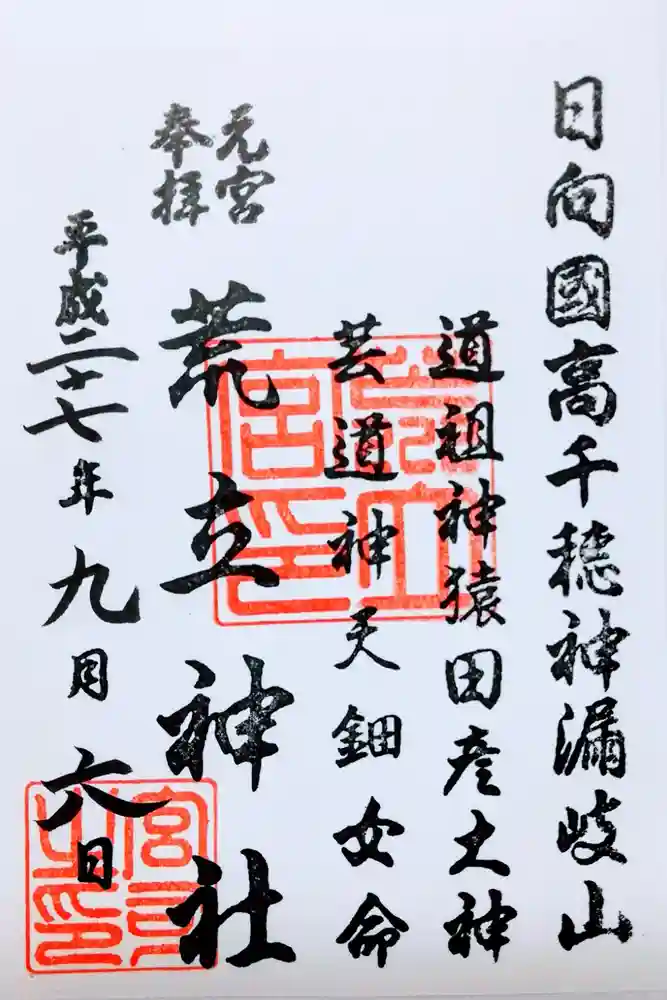 日向國高千穂神漏岐山
道祖神猿田彦大神
芸道神天鈿女命
元宮
奉拝
荒立神社
平成二十七年九月六日
荒立宮印
宮司之印